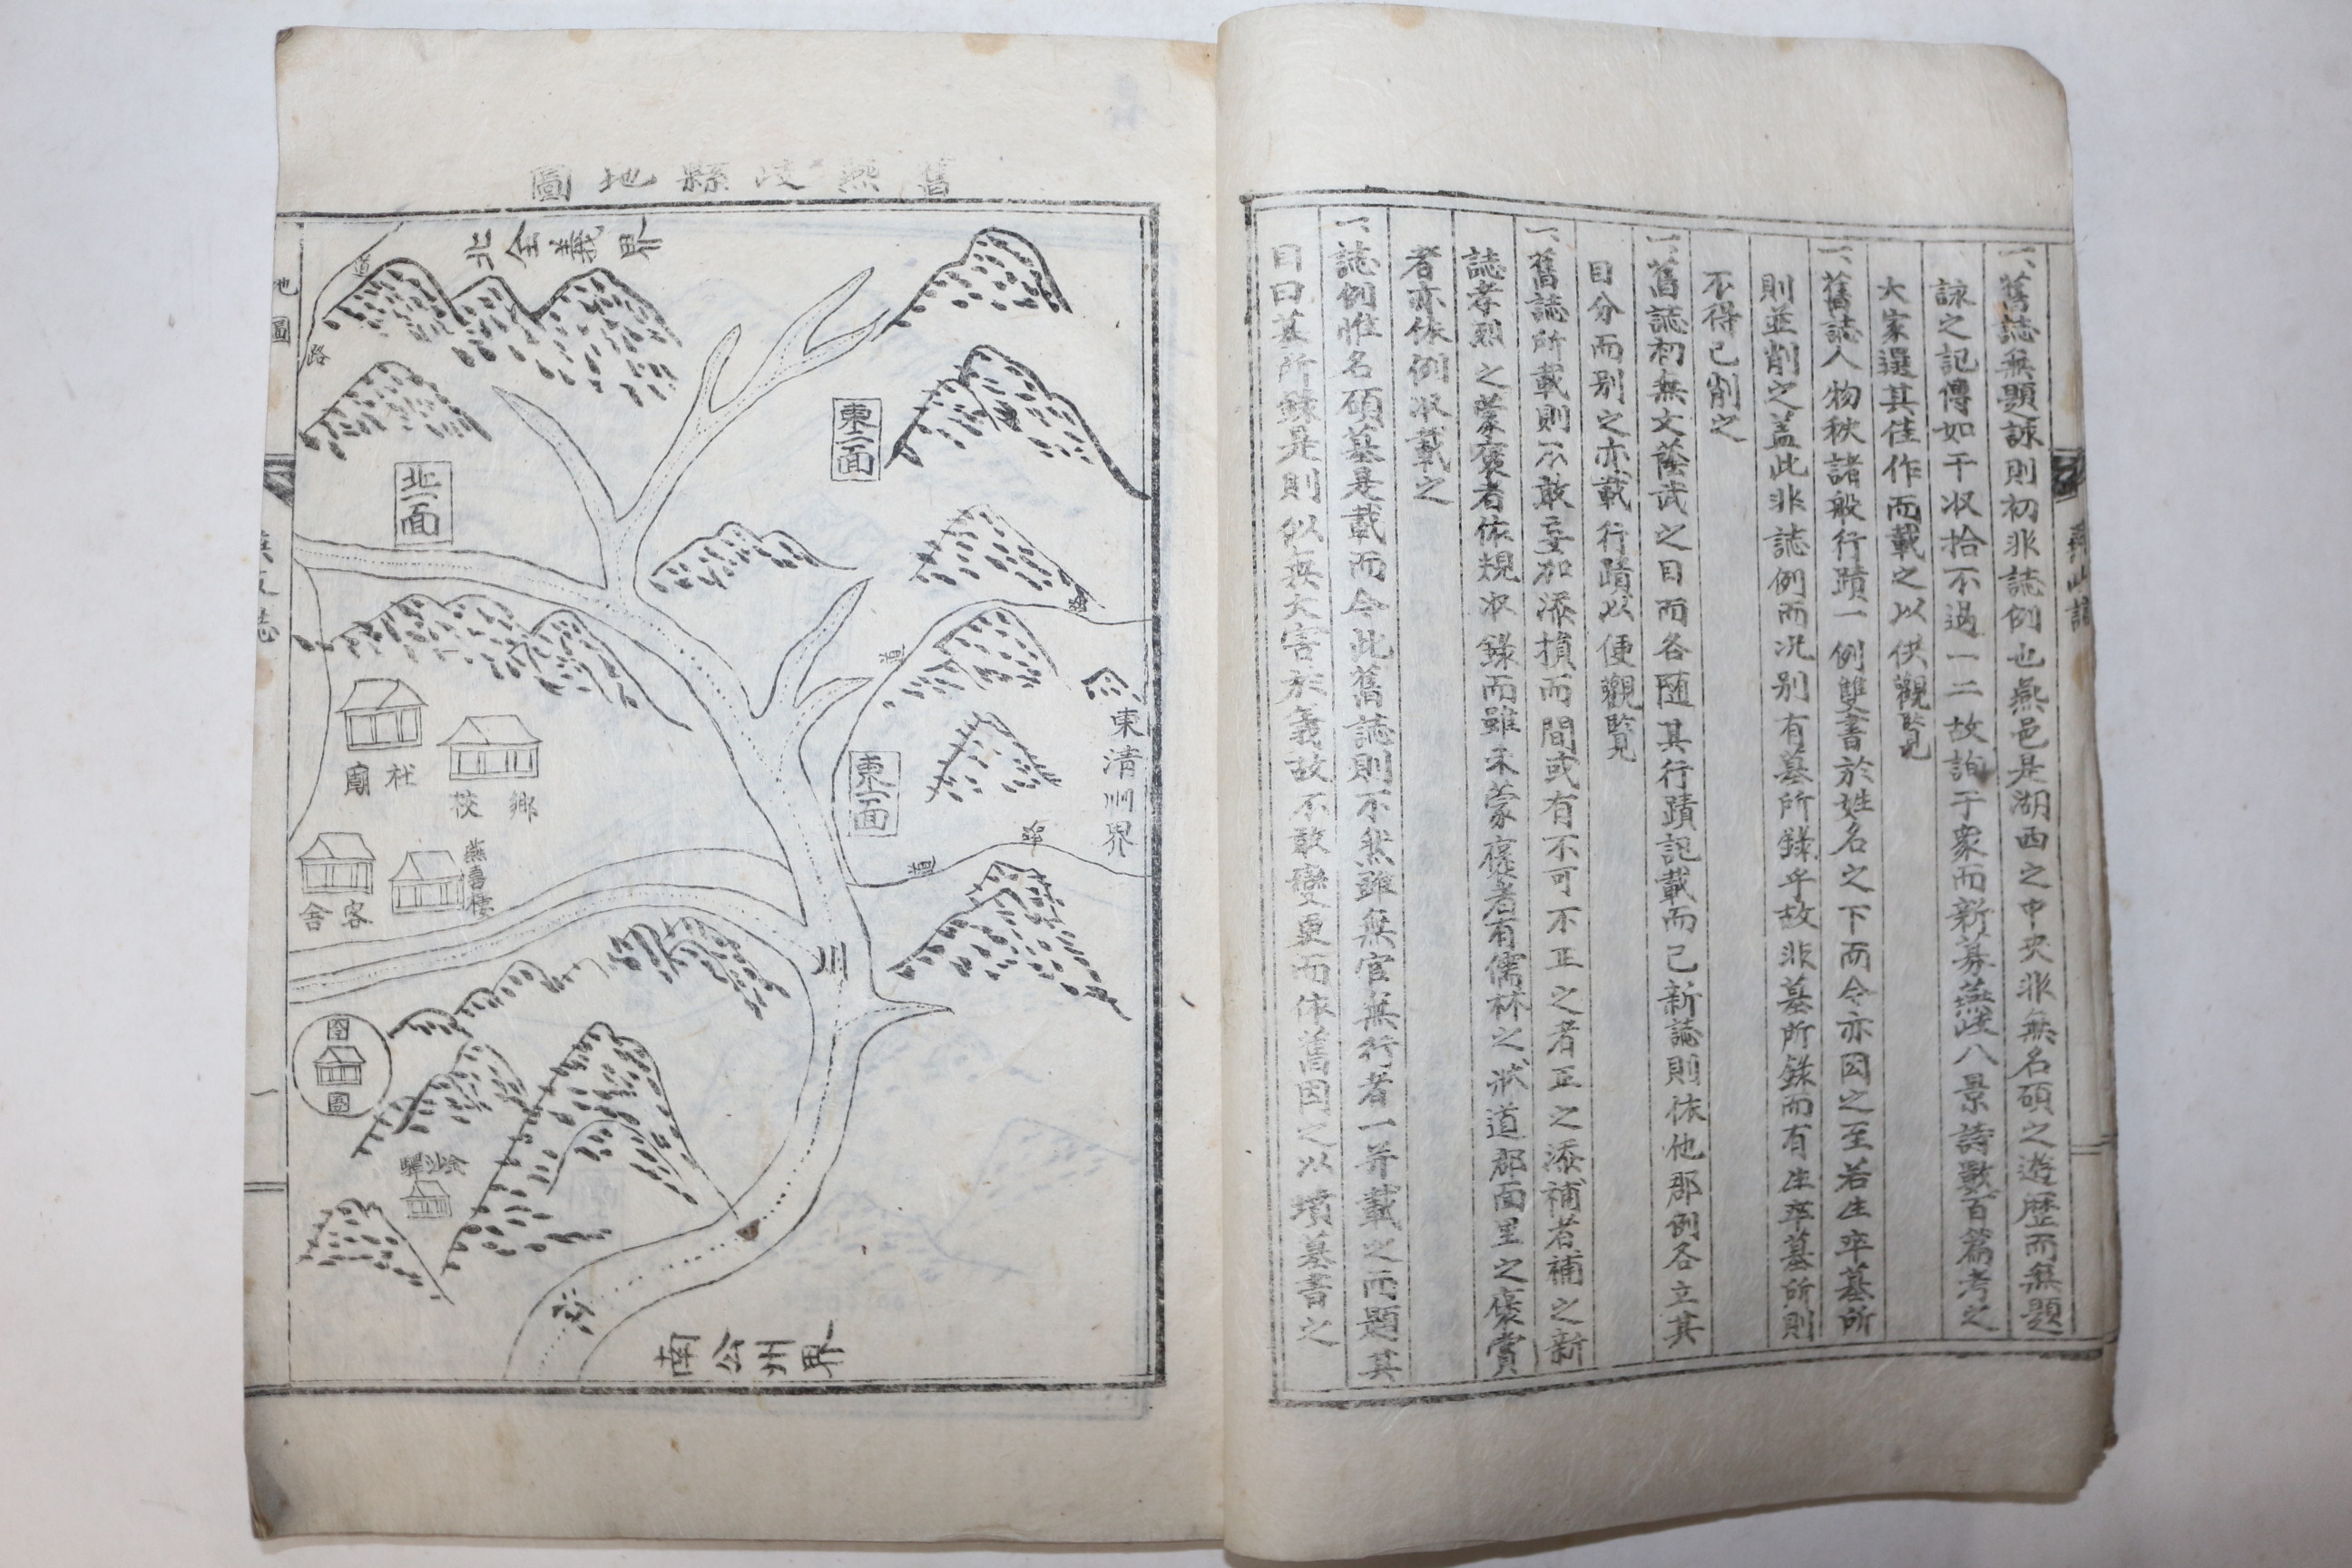 一舊誌無題詠則初非誌例也燕邑是湖西之中央非無名碩之遊歷而無題
詠之記傳如干收拾不過一二故詢于衆而新募燕岐八景詩數百篇考之
大家選其佳作而載之以供觀覽
一舊誌人物秩諸般行蹟一例雙書於姓名之下而今亦因之至若生卒墓所
則並削之盖此非誌例而况别有墓所錄乎故非墓所錄而有生卒墓所則
不得已削之
一舊誌初無文蔭武之目而各随其行蹟記載而已新誌則依他郡例各立其
目分而别之亦載行蹟以便觀覽
一舊誌所載則不敢妄加添損而間或有不可不正之者正之添補者補之新
誌孝烈之蒙褒者依規收錄而雖未蒙褒者有儒林之狀道郡面里之褒賞
者亦依例收載之
一誌例惟名碩墓是載而今此舊誌則不然雖無官無行者一并載之而題其
目曰墓所錄是則似無大害於義故不敢變更而依舊因之以墳墓書之
燕岐誌
舊燕岐縣地圖
北全義界
道
路
東二面
北二面
道
路
東清州界
東一面
社
廟
鄉
校
燕喜樓
客
舍
路
道
川
囹
圄
金沙驛
南公州界
地圖
燕岐誌
一